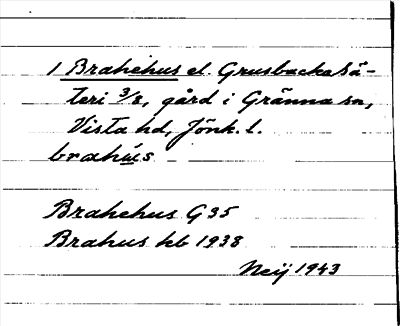 1 Brahehus el. Grusbacka sä-
teri 3/8, gård i Gränna sn,
Vista hd, Jönk. l.
brahús
Brahehus G35
Brahus hb 1938
Neij 1943